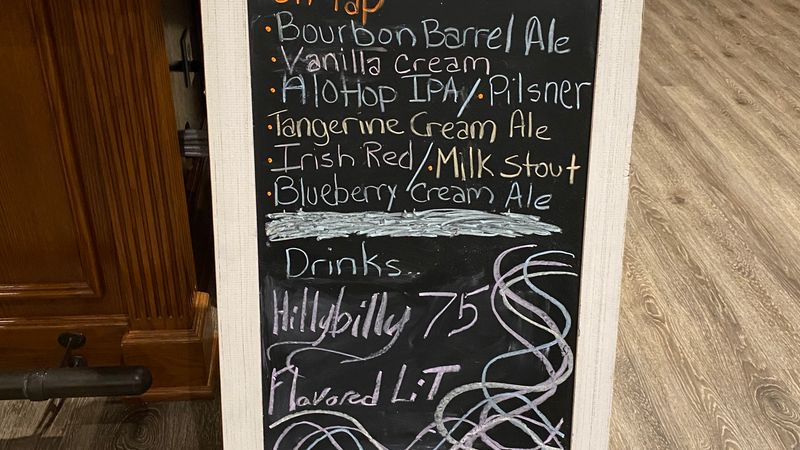 On Tap
·Bourbon Barrel Ale
·Vanilla Cream
·AloHop IPA/·Pilsner
·Tangerine Cream Ale
·Irish Red/·Milk Stout
·Blueberry Cream Ale
Drinks..
Hillybilly 75
Flavored LiT